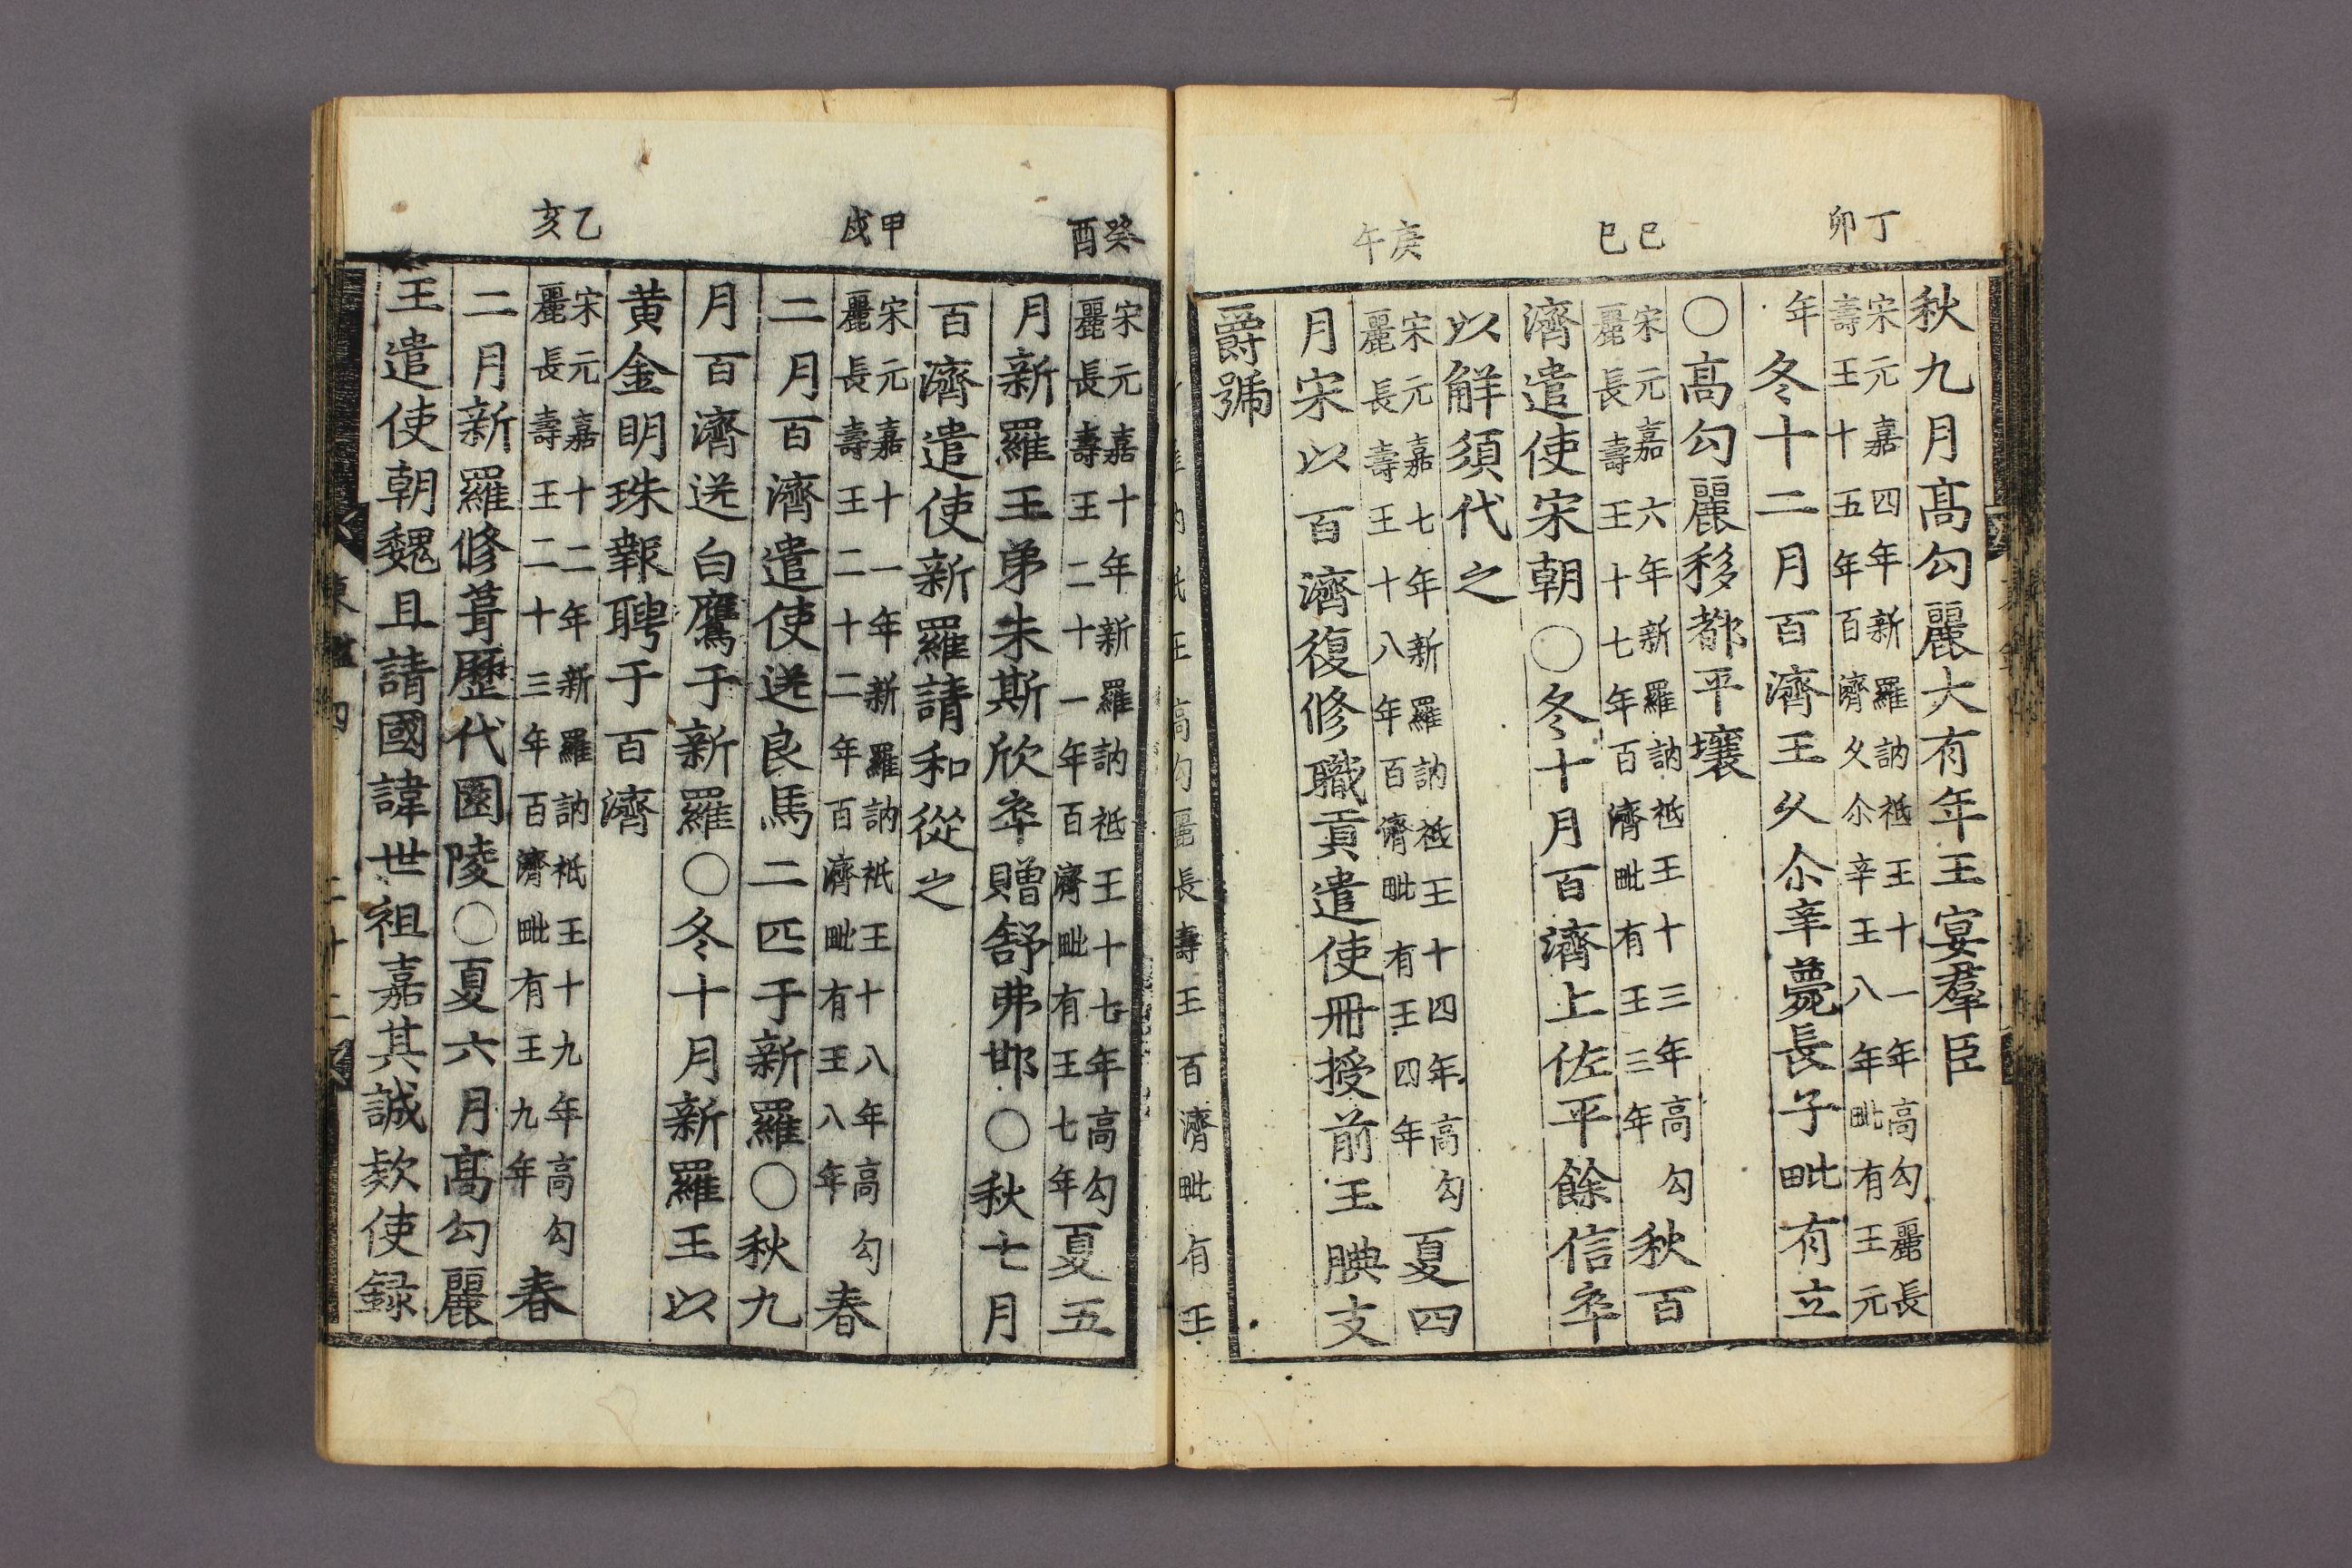 丁卯
己巳
庚午
秋九月高勾麗大有年王宴羣臣
宋元嘉四年新羅訥祗王十一年高勾麗長
壽王十五年百濟久尒辛王八年毗有王元
年冬十二月百濟王久尒辛薨長子毗有立
○高勾麗移都平壤
宋元嘉六年新羅訥祗王十三年高勾
麗長壽王十七年百濟毗有王三年
秋百
濟遣使宋朝○冬十月百濟上佐平餘信卒
以解須代之
宋元嘉七年新羅訥祗王十四年高勾
麗長壽王十八年百濟毗有王四年
夏四
月宋以百濟復修職貢遣使冊授前王腆支
爵號
癸酉
甲戌
乙亥
宋元嘉十年新羅訥祗王十七年高勾
麗長壽王二十一年百濟毗有王七年
夏五
月新羅王弟未斯欣卒贈舒弗邯○秋七月
百濟遣使新羅請和從之
宋元嘉十一年新羅訥祗王十八年高勾
麗長壽王二十二年百濟毗有王八年
春
二月百濟遣使送良馬二匹于新羅○秋九
月百濟送白鷹于新羅○冬十月新羅王以
黃金明珠報聘于百濟
宋元嘉十二年新羅訥祗王十九年高勾
麗長壽王二十三年百濟毗有王九年
春
二月新羅修葺歷代園陵○夏六月高勾麗
王遣使朝魏且請國諱世祖嘉其誠款使録